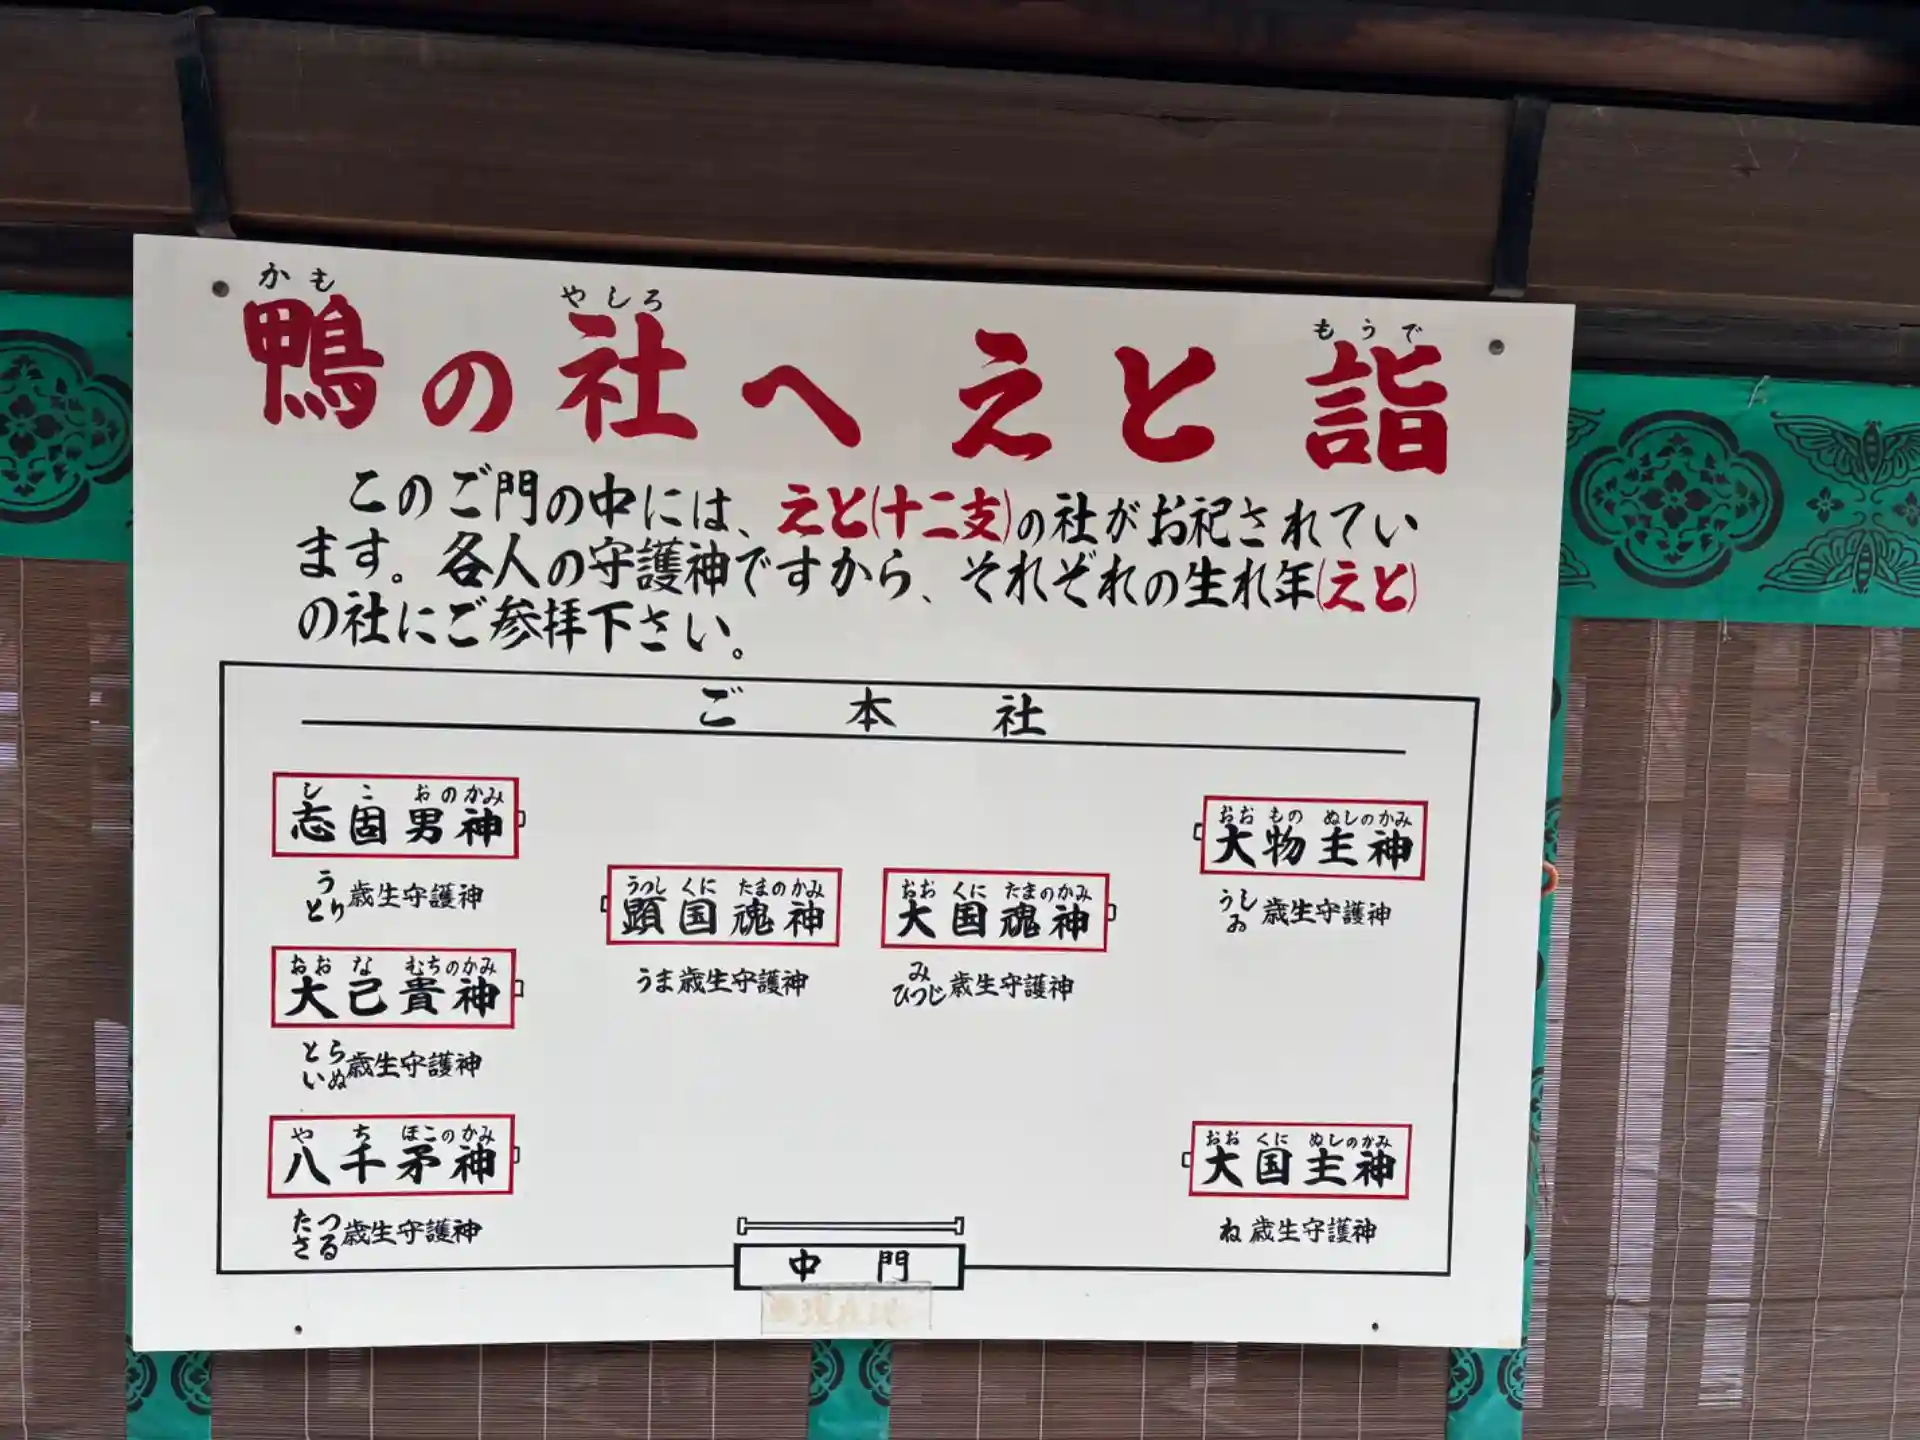 かも やしろ もうで
鴨の社へ えと詣
このご門の中には、えと(十二支)の社がお祀されてい
ます。各人の守護神ですから、それぞれの生れ年(えと)
の社にご参拝下さい。
ご本社
しこおのかみ
志固男神
う
とり
歳生守護神
おおなむちのかみ
大己貴神
とら
いぬ
歳生守護神
やちほこのかみ
八千矛神
たつ
さる
歳生守護神
うつしくにたまのかみ
顕国魂神
うま歳生守護神
おおくにたまのかみ
大国魂神
み
ひつじ
歳生守護神
おおものぬしのかみ
大物主神
うし
ゐ
歳生守護神
おおくにぬしのかみ
大国主神
ね歳生守護神
中門